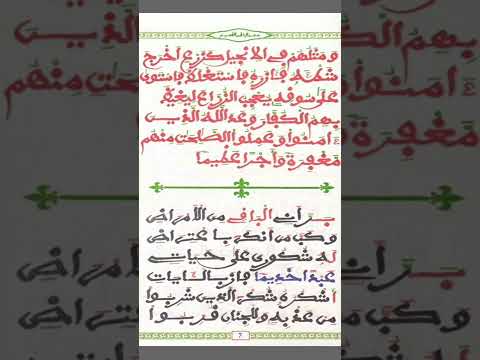 وَمَثَلُهُمْ فِي الْإِنْجِيلِ كَزَرْعٍ اَخْرَجَ
شَطْـَٔهُ فَـَٔازَرَهُ فَاسْتَغْلَظَ فَاسْتَوَى
عَلَى سُوقِهِ يُعْجِبُ الزُّرَّاعَ لِيَغِيظَ
بِهِمُ الْكُفَّارَ وَعَدَ اللَّهُ الَّذِينَ
ءَامَنُوا وَعَمِلُوا الصَّلِحَتِ مِنْهُم
مَغْفِرَةً وَأَجْرًا عَظِيمًا
بَرَّأَنِي الْبَاقِي مِنَ الْأَمْرَاضِ
وَكَبَّ مَنْ أَنْكَرَ بِاعْتِرَاضِ
لَهُ شُكُورِي عَلَى حَيَاتِي
عَبْدًا خَدِيمًا فَازَ بِالْآيَاتِ
أَشْكُرُهُ شُكْرَ الَّذِينَ شَرِبُوا
مِنْ عَذْبِهِ وَلِلْجِنَانِ قُرِّبُوا
7